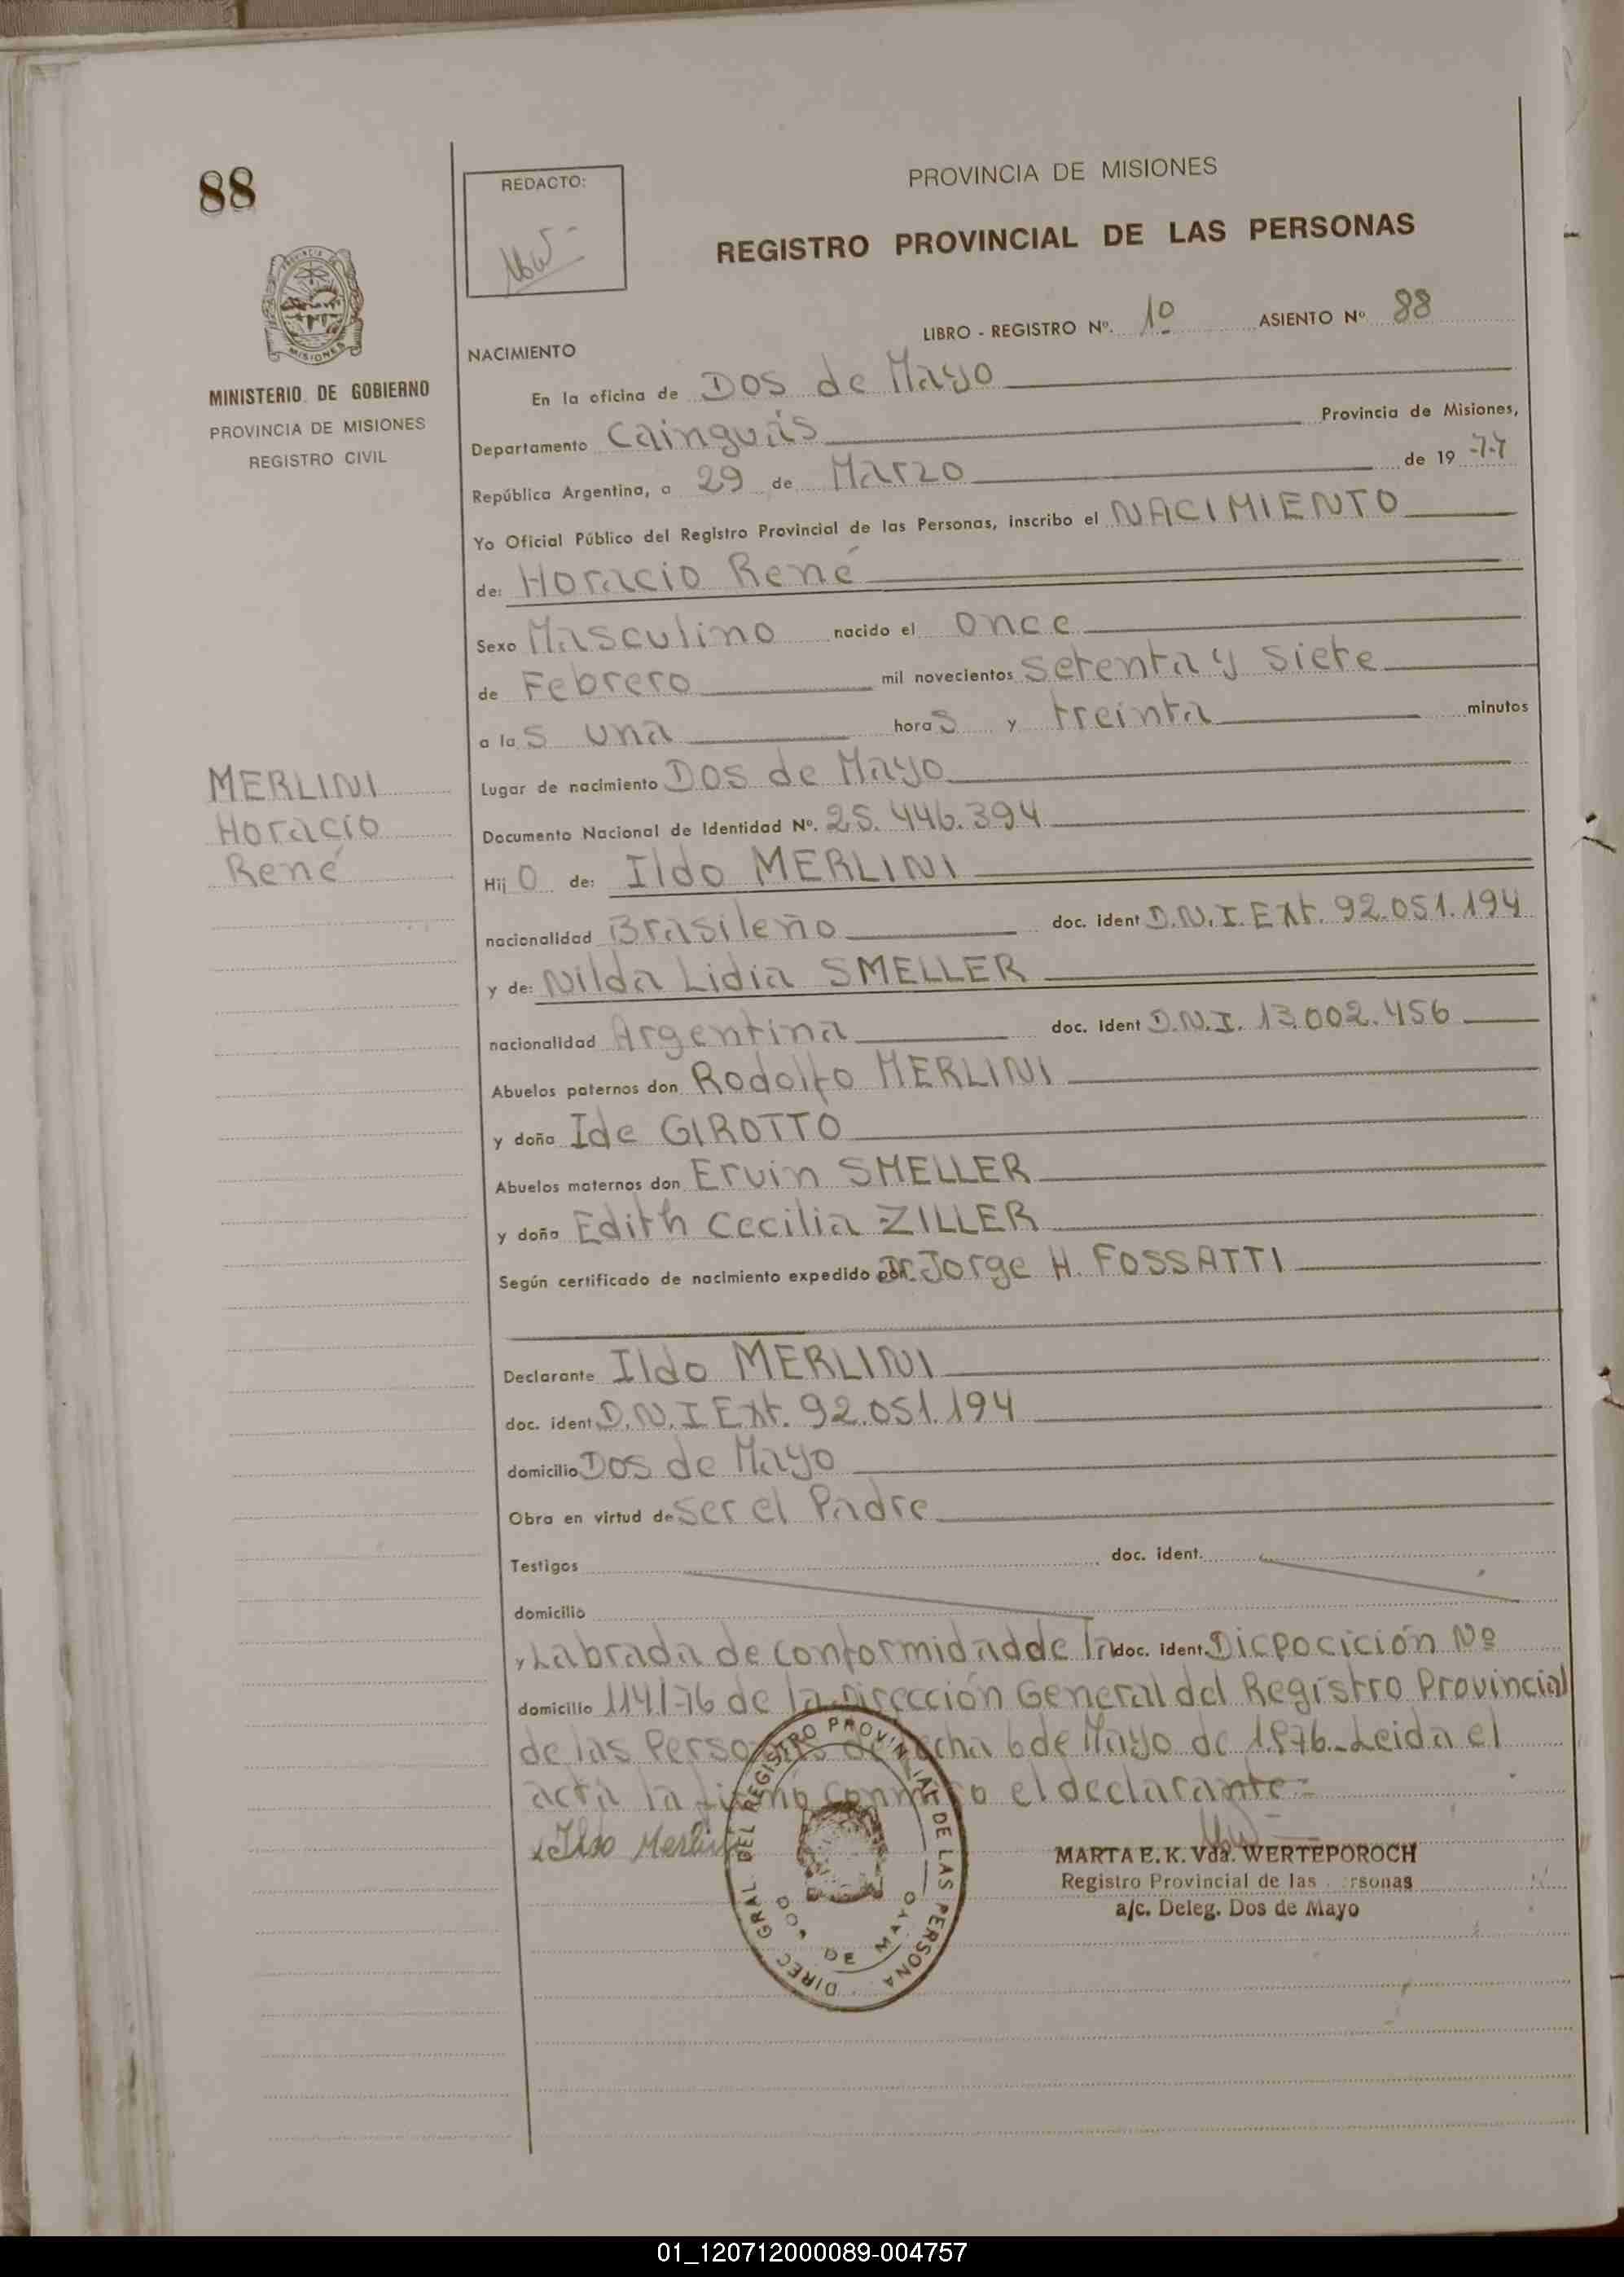 88
PROVINCIA DE
MISIONES
MINISTERIO DE GOBIERNO
PROVINCIA DE MISIONES
REGISTRO CIVIL
REDACTO:
PROVINCIA DE MISIONES
REGISTRO PROVINCIAL DE LAS PERSONAS
LIBRO - REGISTRO Nº. 1º ASIENTO Nº 88
NACIMIENTO
En la oficina de Dos de Mayo
Departamento Cainguás Provincia de Misiones,
República Argentina, a 29 de Marzo de 19 77
Yo Oficial Público del Registro Provincial de las Personas, inscribo el NACIMIENTO
de: Horacio René
Sexo Masculino nacido el once
de Febrero mil novecientos setenta y siete
a las una horas y treinta minutos
Lugar de nacimiento Dos de Mayo
MERLINI
Horacio
René
Documento Nacional de Identidad Nº. 25.446.394
Hijo de: Ildo MERLINI
nacionalidad Brasileño doc. ident D.N.I. Ext. 92.051.194
y de: Nilda Lidia SMELLER
nacionalidad Argentina doc. ident D.N.I. 13.002.456
Abuelos paternos don Rodolfo MERLINI
y doña Ide GIROTTO
Abuelos maternos don Ervin SMELLER
y doña Edith Cecilia ZILLER
Según certificado de nacimiento expedido por Dr. Jorge H. FOSSATTI
Declarante Ildo MERLINI
doc. ident D.N.I Ext. 92.051.194
domicilio Dos de Mayo
Obra en virtud de ser el Padre
Testigos doc. ident.
domicilio
y Labrada de conformidad de la doc. ident. Dicpocición Nº
domicilio 114/76 de la Dirección General del Registro Provincial
de las Personas de fecha 6 de Mayo de 1.976.- Leida el
acta la firmó conmigo el declarante=
Ildo Merlini
DIREC. GRAL. DEL REGISTRO PROVINCIAL DE LAS PERSONA
DOS DE MAYO
MARTA E. K. Vda. WERTEPOROCH
Registro Provincial de las rsonas
a/c. Deleg. Dos de Mayo
01_120712000089-004757